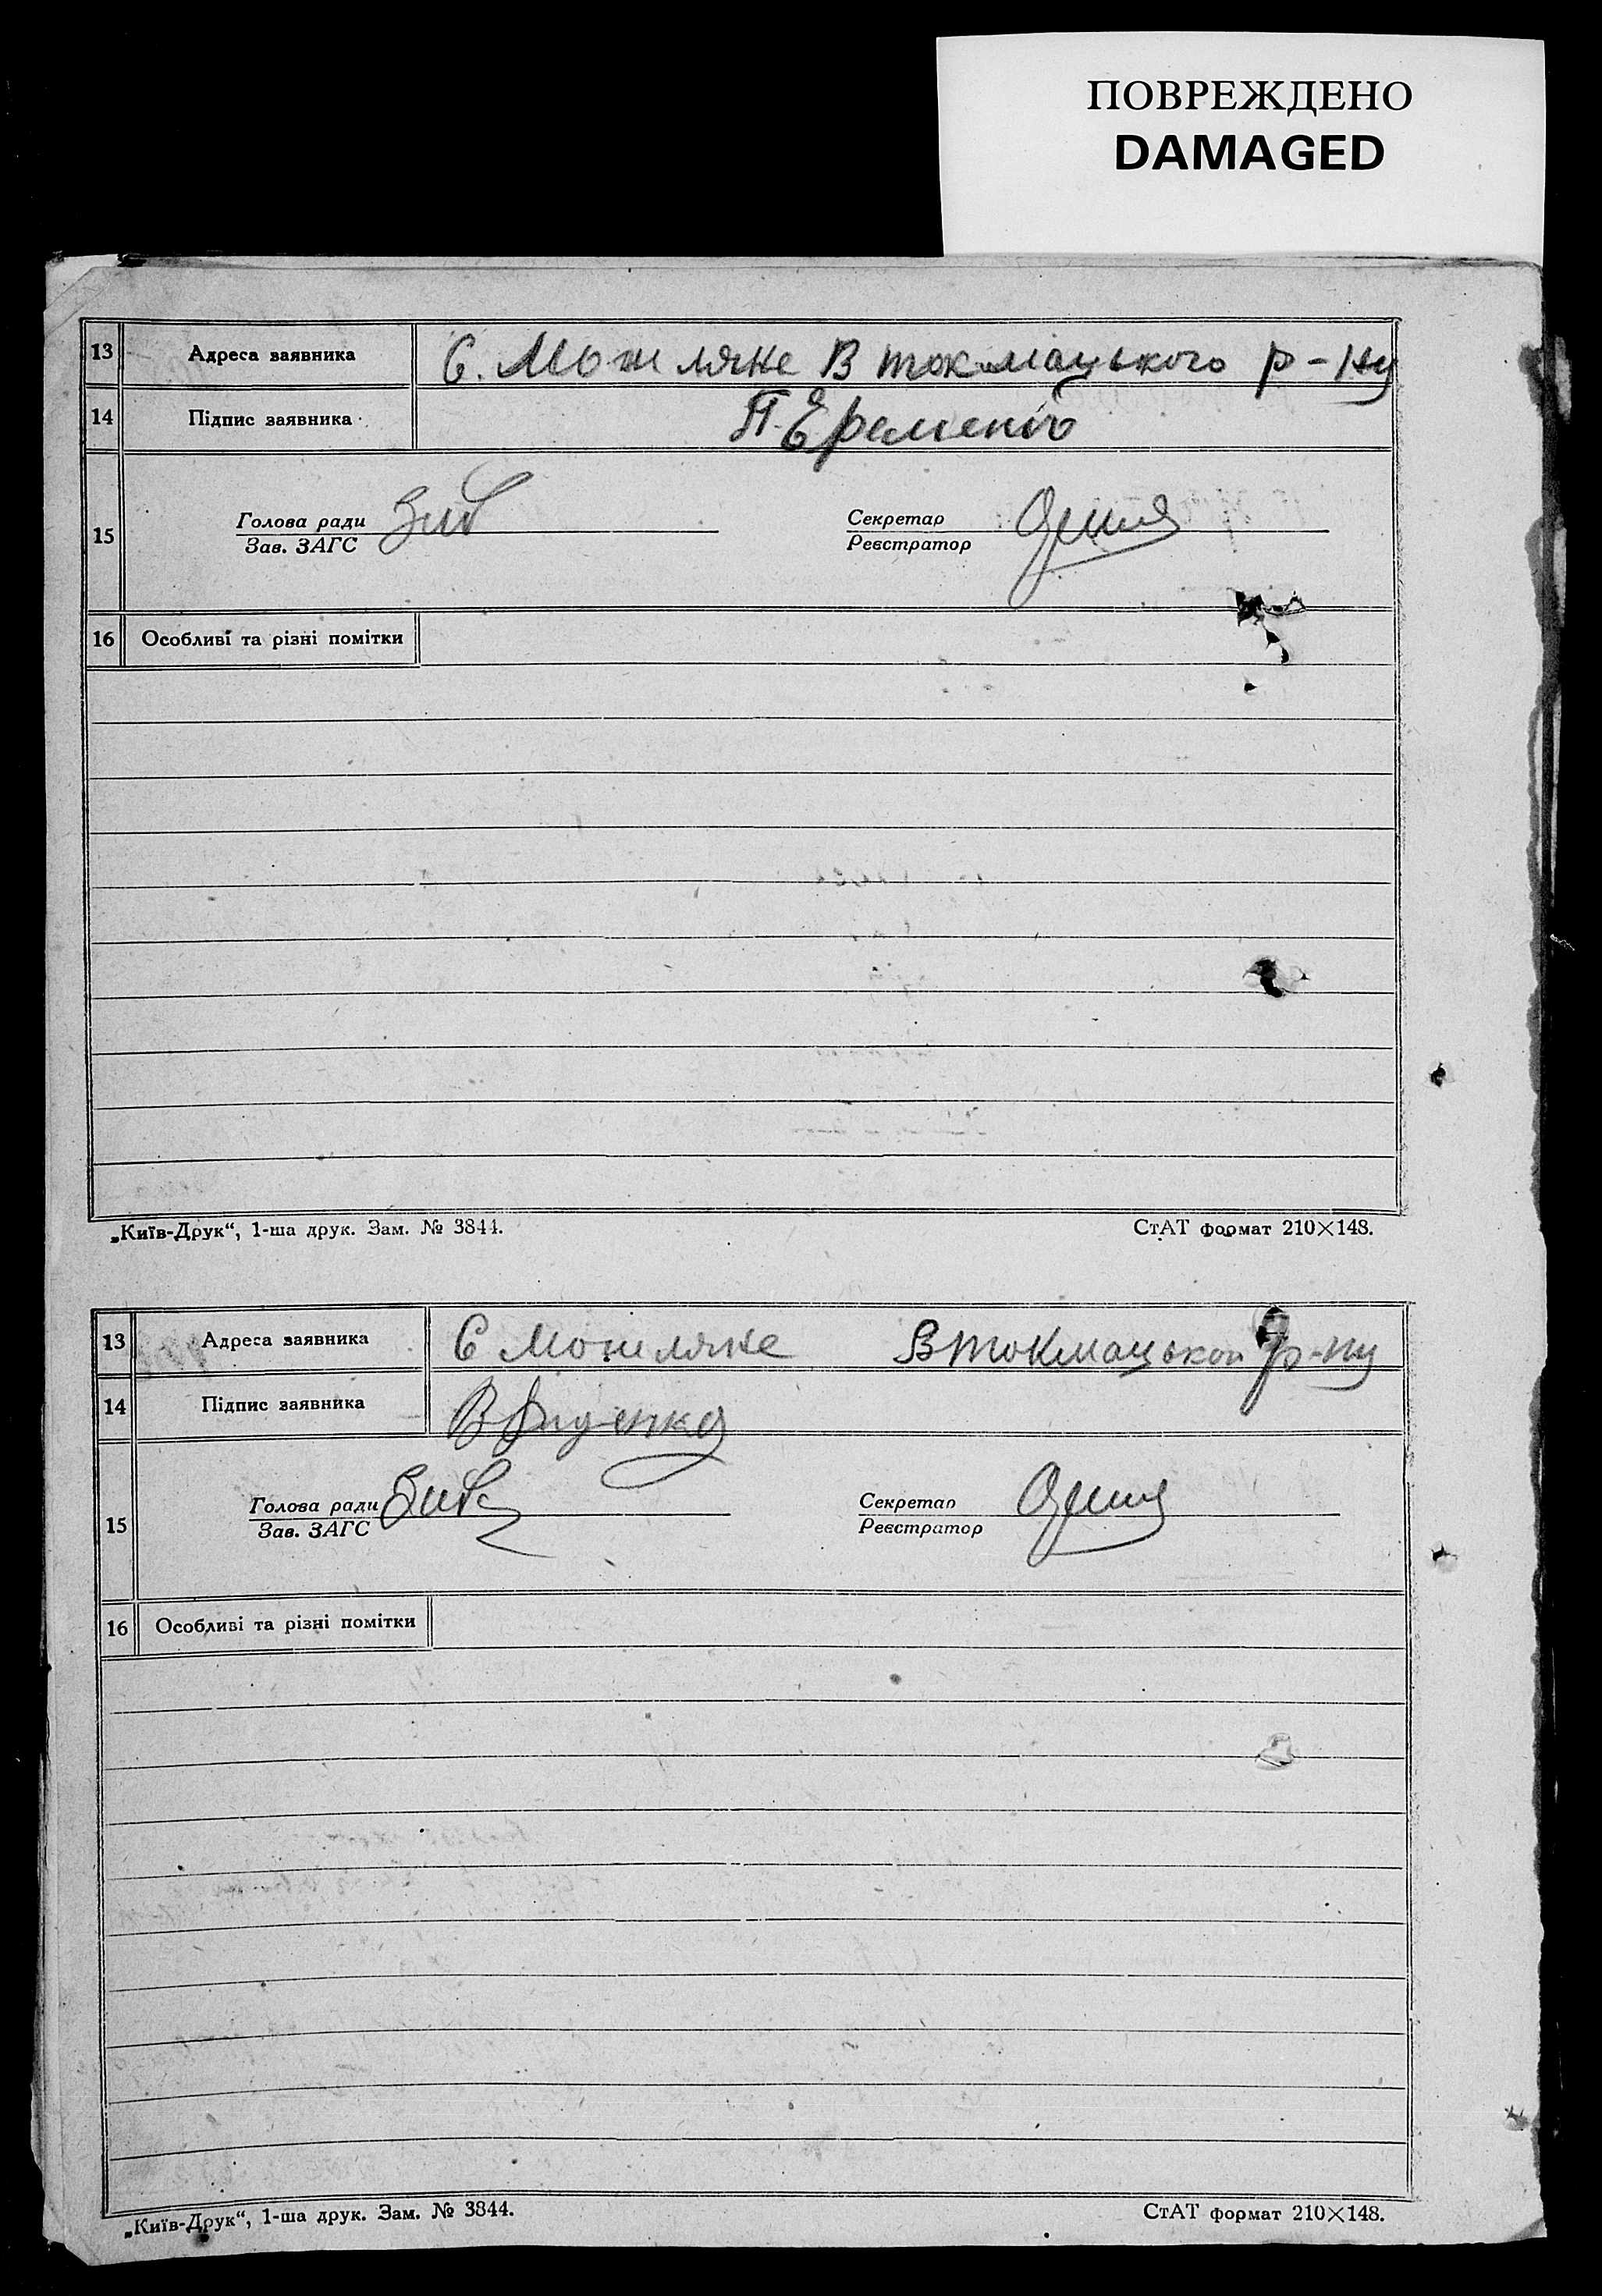 ПОВРЕЖДЕНО
DAMAGED
13 Адреса заявника С. Могиляне В токмацького р-ну
14 Підпис заявника П. Еременко
15 Голова ради Секретар
Зав. ЗАГС Реєстратор
16 Особливі та різні помітки
„Київ-Друк“, 1-ша друк. Зам. № 3844. СтАТ формат 210×148.
13 Адреса заявника С Могиляне В токмацького р-ну
14 Підпис заявника
15 Голова ради Секретар
Зав. ЗАГС Реєстратор
16 Особливі та різні помітки
„Київ-Друк“, 1-ша друк. Зам. № 3844. СтАТ формат 210×148.